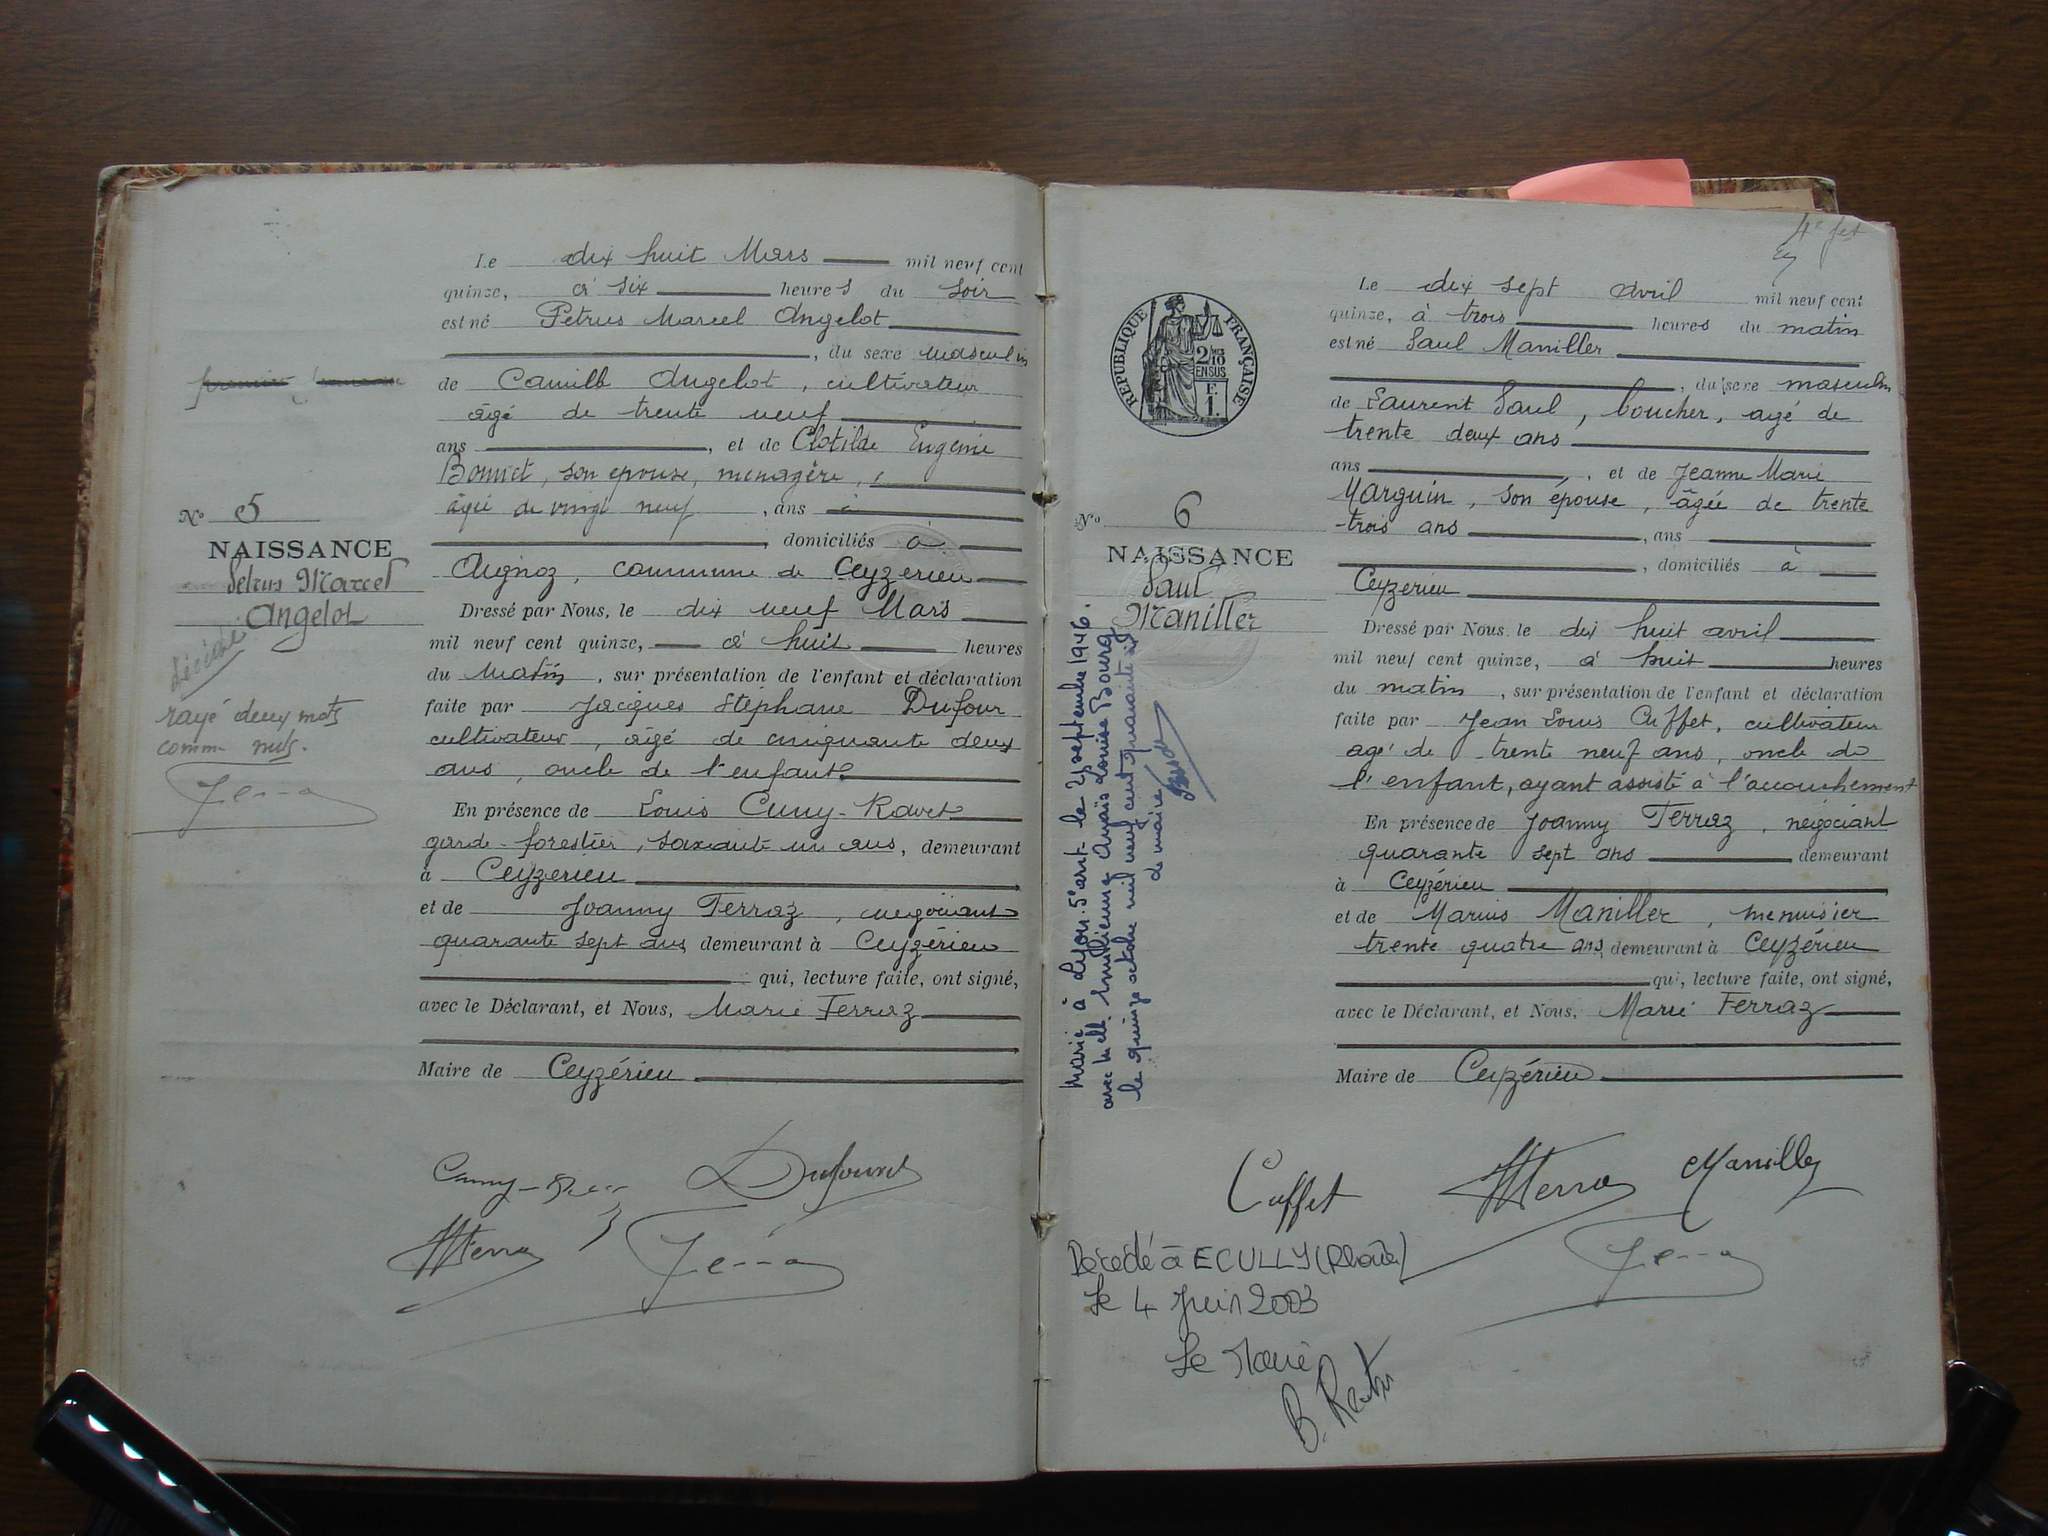 Le dix huit Mars mil neuf cent
quinze, à six heures du soir
est né Petrus Marcel Angelot
, du sexe masculin
de Camille Angelot, cultivateur
âgé de trente neuf
ans , et de Clotilde Eugenie
Bonnet, son epouse, menagère,
âgée de vingt neuf , ans
, domiciliés à
Aignoz, commune de Ceyzerieu
Dressé par Nous, le dix neuf Mars
mil neuf cent quinze, à huit heures
du matin, sur présentation de l'enfant et déclaration
faite par Jacques Stéphane Dufour
cultivateur, âgé de cinquante deux
ans, oncle de l'enfant
En présence de Louis Cuny-Ravet
garde-forestier, soixante un ans, demeurant
à Ceyzerieu
et de Joanny Ferraz, negociant
quarante sept ans demeurant à Ceyzérieu
qui, lecture faite, ont signé,
avec le Déclarant, et Nous, Marie Ferraz
Maire de Ceyzérieu
No 5
NAISSANCE
Petrus Marcel
Angelot
Décédé
rayé deux mots
comme nuls.
RÉPUBLIQUE FRANÇAISE
2/10
EN SUS
F.
1.
No 6
NAISSANCE
Paul
Maniller
Marié à Lyon 5e arrt le 21 septembre 1946.
avec Melle Emilienne Anaïs Louise Bourg
le quinze octobre mil neuf cent quarante six
Le maire
Le dix sept avril mil neuf cent
quinze, à trois heures du matin
est né Paul Maniller
, du sexe masculin
de Laurent Paul, boucher, agé de
trente deux ans
ans , et de Jeanne Marie
Marguin, son épouse, âgée de trente
-trois ans , ans
, domiciliés à
Ceyzerieu
Dressé par Nous, le dix huit avril
mil neuf cent quinze, à huit heures
du matin, sur présentation de l'enfant et déclaration
faite par Jean Louis Cuffet, cultivateur
agé de trente neuf ans, oncle de
l'enfant, ayant assisté à l'accouchement
En présence de Joanny Ferraz, négociant
quarante sept ans demeurant
à Ceyzérieu
et de Marius Maniller, menuisier
trente quatre ans, demeurant à Ceyzérieu
qui, lecture faite, ont signé,
avec le Déclarant, et Nous, Marie Ferraz
Maire de Ceyzérieu
Cuffet Maniller
Décédé à ECULLY (Rhône)
Le 4 Juin 2003
Le Maire